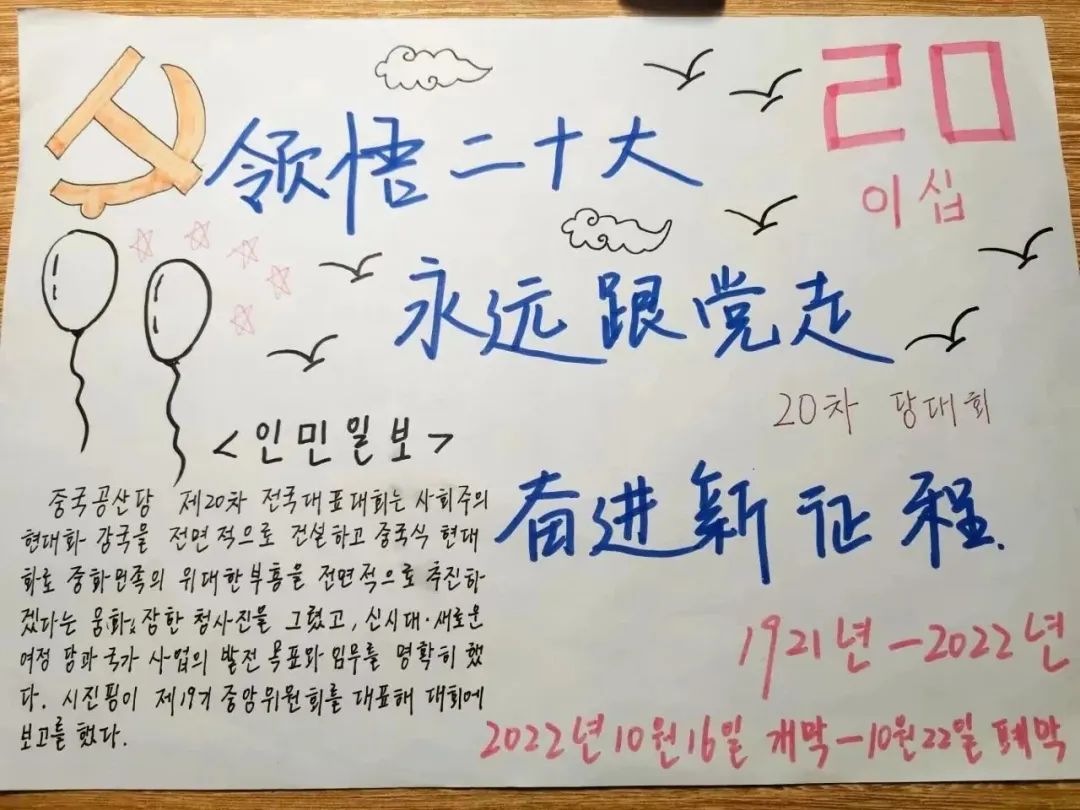 领悟二十大
20
이십
永远跟党走
20차 당대회
<인민일보>
중국공산당 제20차 전국대표대회는 사회주의
현대화 강국을 전면적으로 건설하고 중국식 현대
화로 중화민족의 위대한 부흥을 전면적으로 추진하
겠다는 웅화장한 청사진을 그렸고, 신시대·새로운
여정 당과 국가 사업의 발전 목표와 임무를 명확히 했
다. 시진핑이 제19기 중앙위원회를 대표해 대회에
보고를 했다.
奋进新征程.
1921년-2022년
2022년10월16일 개막-10월22일 폐막